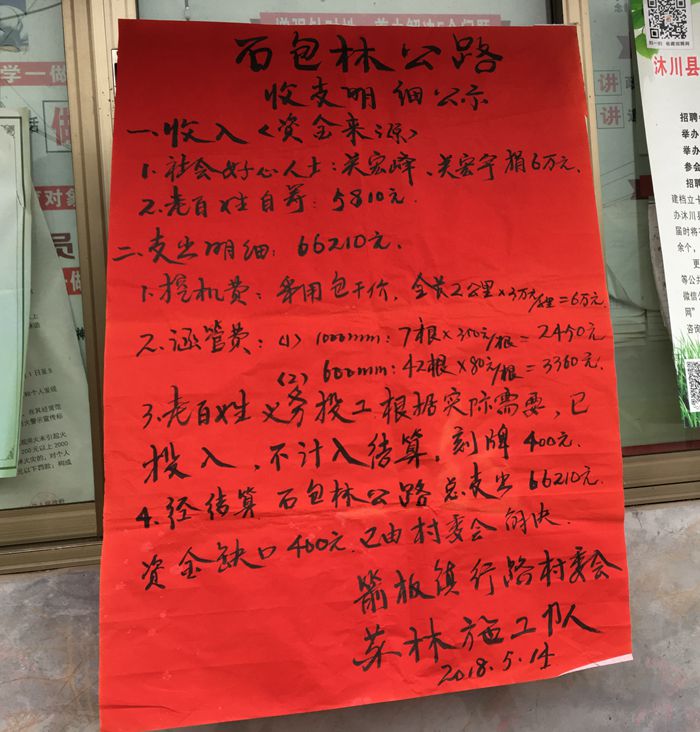 石包林公路
收支明细公示
一、收入〈资金来源〉
1.社会好心人士:关宏峰、关宏宇捐6万元.
2.老百姓自筹:5810元.
二、支出明细:66210元.
1.挖机费:采用包干价,全长2公里×3万元/公里=6万元
2.涵管费:(1) 1000mm:7根×350元/根=2450元
(2) 600mm:42根×80元/根=3360元.
3.老百姓义务投工根据实际需要,已
投入,不计入结算,刻牌400元.
4.经结算石包林公路总支出66210元.
资金缺口400元.已由村委会解决.
箭板镇行路村委会
苏林施工队
2018.5.14
沐川县
招聘
举办
举办
参会
招聘
建档立卡
办沐川县
届时将
余个,
更
等公共
微信
网"
咨询
学一做
做
讲
讲
对象
员
一做